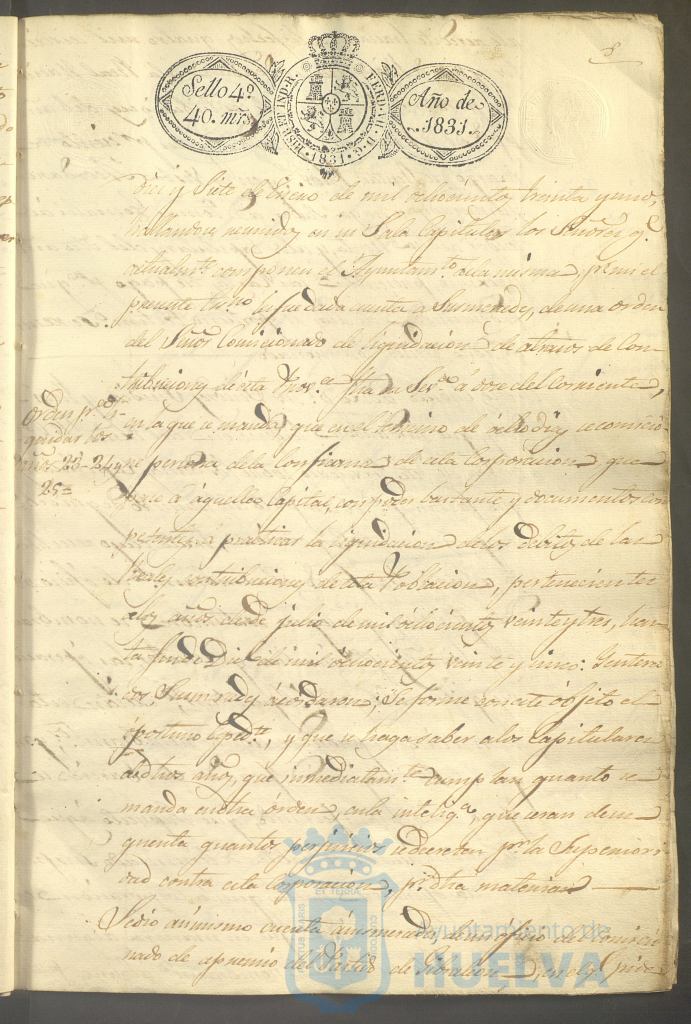 Sello 4º
40. mrs
HISP. ET IND. R. FERD. VII. D. G. 1831.
Año de
1831.
Diez y Siete de Enero de mil ochocientos treinta y uno,
hallandose reunidos en su Sala Capitular los Señores q.e
actualmte componen el Ayuntamto de la misma, p.r mi el
presente Es.no les fue dada cuenta a Sus mercedes, de una orden
del Señor Comicionado de liquidacion de atrasos de Con-
tribuciones de esta Prov.cia fha en Ser.a á doce del Corriente,
en la que se manda, que en el termino de ocho dias se comicio-
ne persona de la confianza de esta Corporacion que
pase á aquella Capital, con poder bastante y documentos com-
petentes á practicar la liquidacion de los debitos de las
Reales contribuciones de esta Poblacion, pertenecientes
a los años desde julio de mil ochocientos veinte y tres, has-
ta fin de Dice de mil ochocientos veinte y cinco: Entera-
dos Sus mercedes acordaron; Se forme con este objeto el
oportuno Exped.te, y que se haga saber a los Capitulares
de dhos años, que inmediatamte cumplan quanto se
manda en dha orden, en la intelig.a, que seran de su
cuenta quantos perjuicios se decreten p.r la Superiori-
dad contra esta Corporación, p.r dha materia
Se dio asimismo cuenta a sus mercedes, de un oficio del Comicio-
nado de apremio del Partido de Gibraleon
Orden p.a li-
quidar los
años 23-24 y
25=
Ayuntamiento de
HUELVA